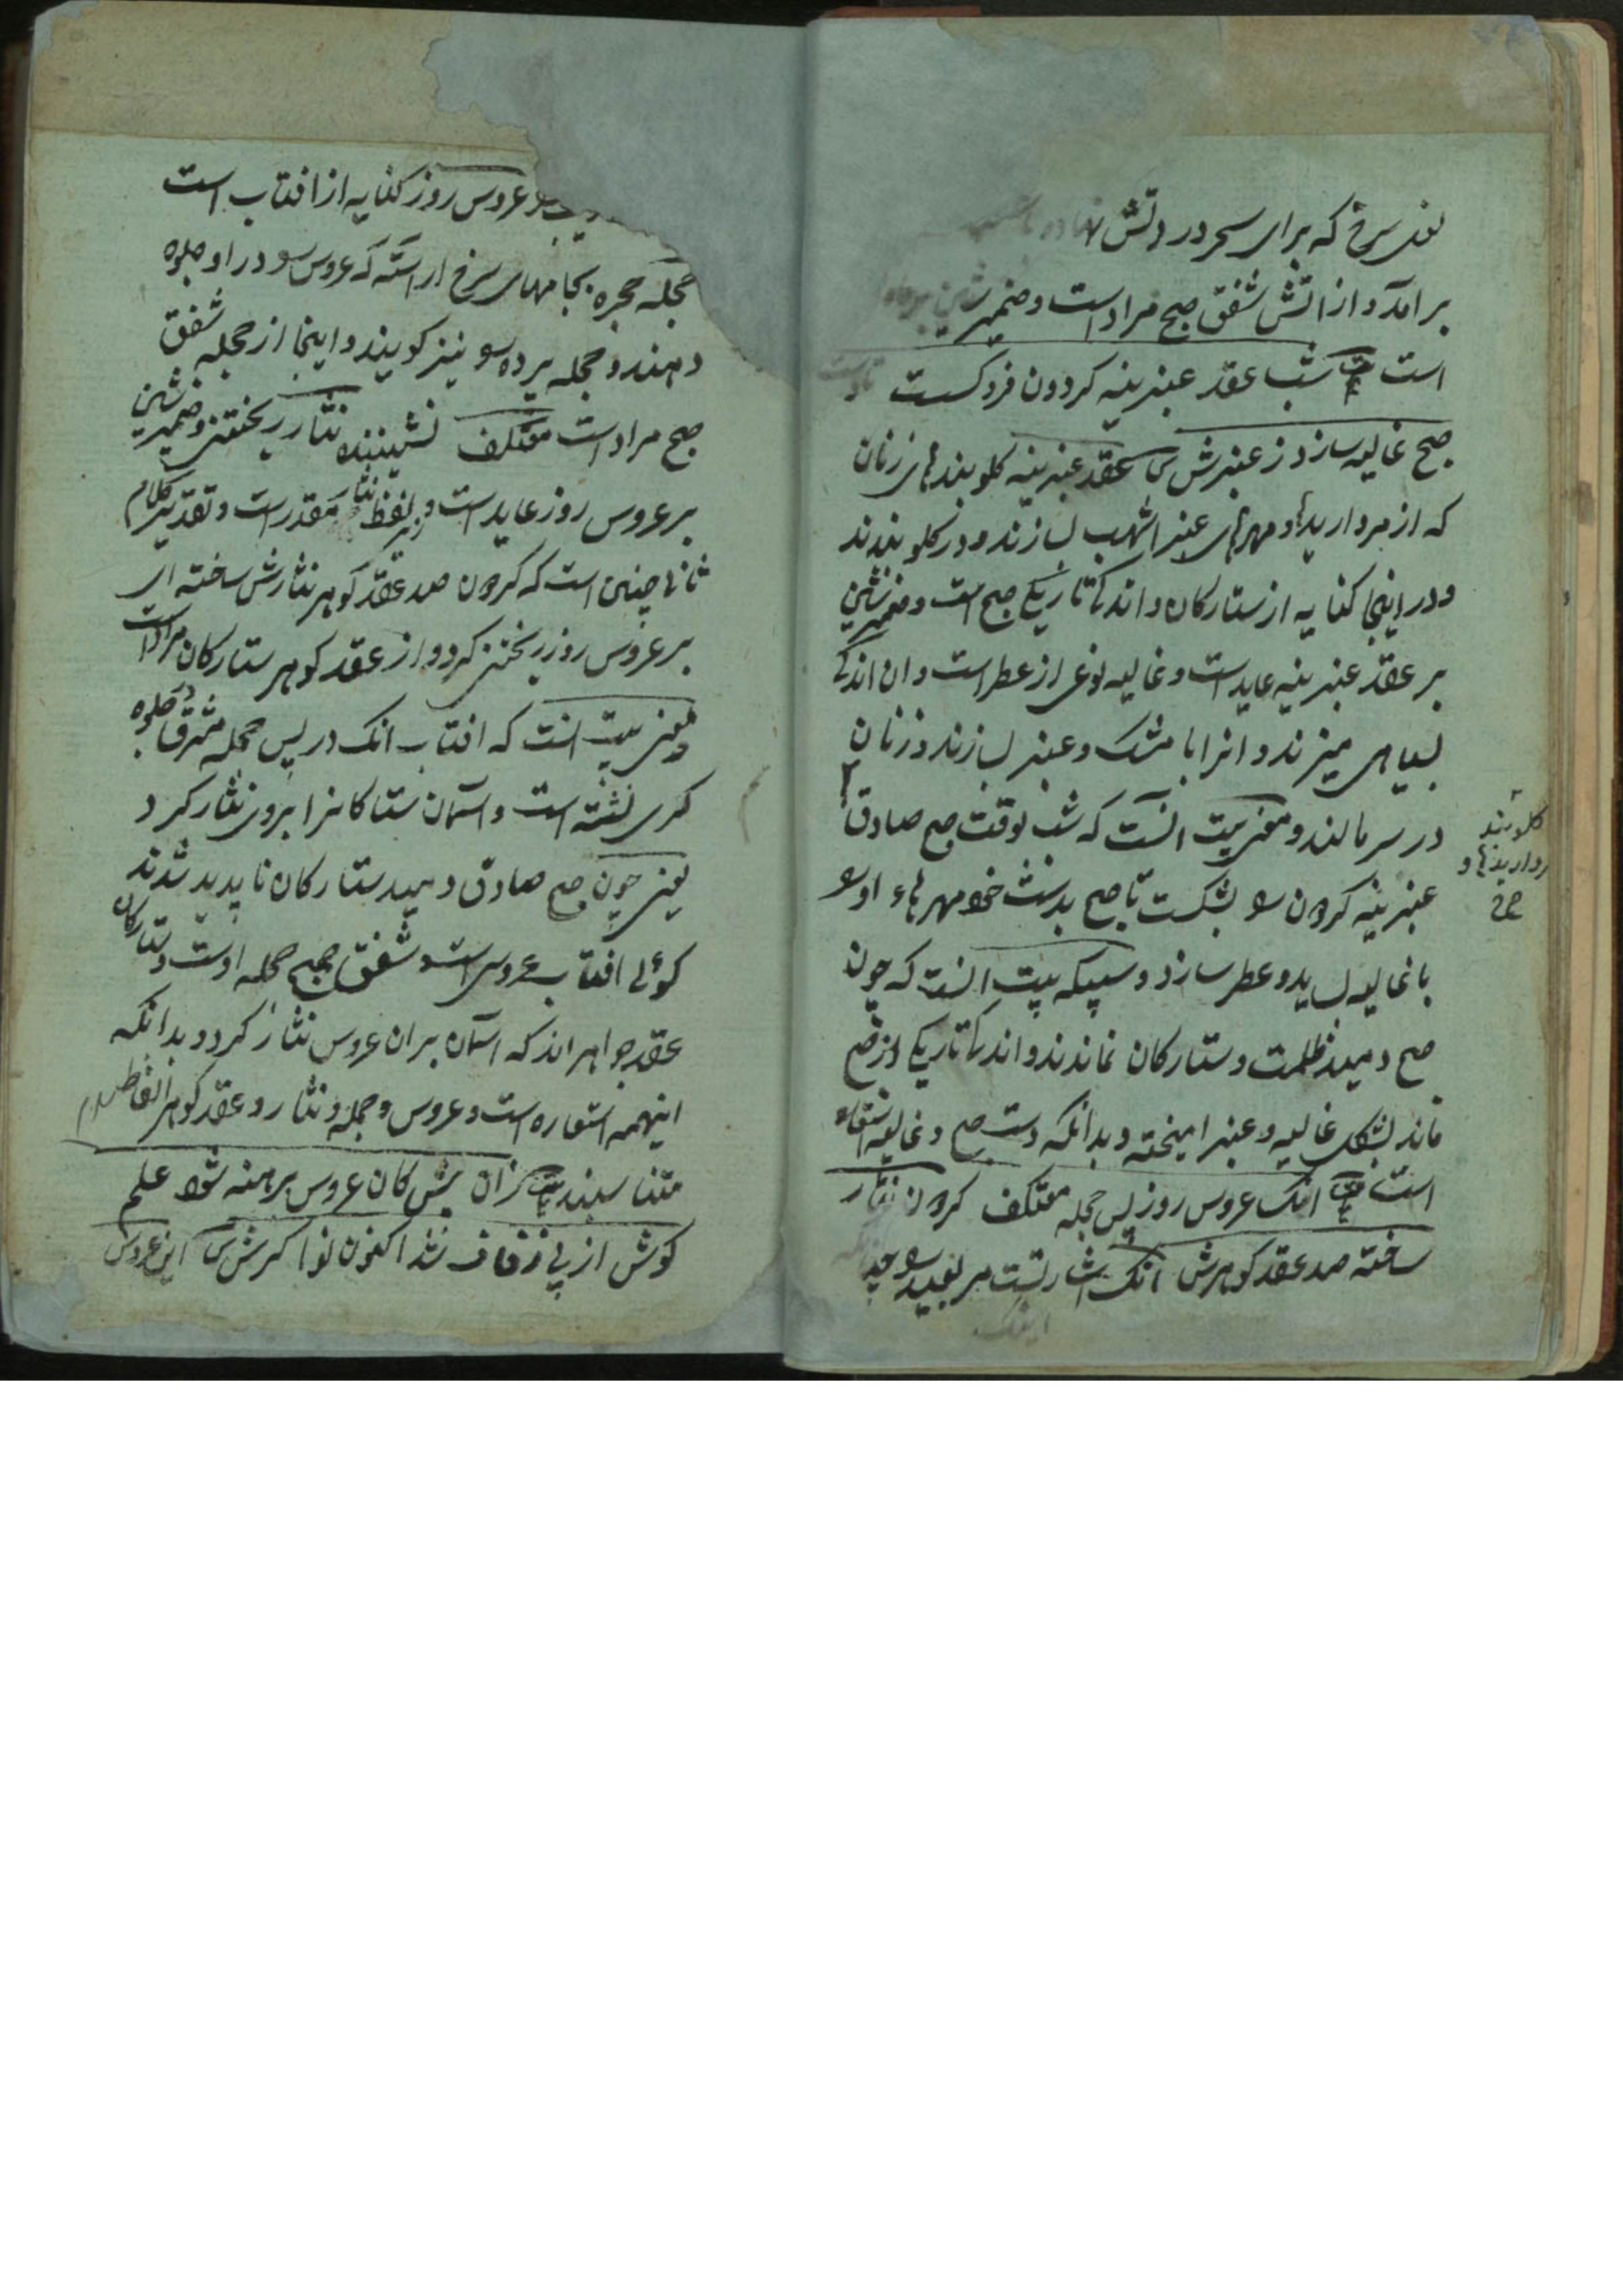 نعل سرخ که برای سحر در دتش نهاده باشند
برامد و از اتش شفق صبح مراد است و ضمیر شین بر ماه
است بیت شب عقد عنبرینه کردون فرو کسست تا دست
صبح غالیه سازد ز عنبرش س عقد عنبرینه کلوبندهای زنان
که از مرواریدها و مهرهای عنبر اشهب بسازند و در کلو بندند
و در اینجا کنایه از ستارکان و اندک تاریکی صبح است و ضمیر شین
بر عقد عنبرینه عاید است و غالیه نوعی از عطر است و ان اندکی
بسیاهی میزند و انرا با مشک و عنبر بسازند و زنان
در سر مالند و معنی بیت انست که شب بوقت صبح صادق
عنبرینه کردون را بشکست تا صبح بدست خود مهرهاء او را
با غالیه بساید و عطر سازد و سپیکه بیت انست که چون
صبح دمید ظلمت و ستارکان نماندند و اندک تاریکی از صبح
ماند بشکل غالیه و عنبر امیخته و بدانکه دست صبح و غالیه استعاره
است بیت انک عروس روز پس حجله معتکف کردون نثار
ساخته صد عقد کوهرش انک اشارتست مر بعید را چنانکه
اینک
کلوبند
مرواریدها و
صح
عروس روز کنایه از افتاب است
حجله حجره بجامهای سرخ اراسته که عروس را در او جلوه
دهند و حجله پرده را نیز کویند و اینجا از حجله شفق
صبح مراد است معتکف نشیننده نثار ریختن و ضمیر شین
بر عروس روز عاید است و لفظ نثار مقدر است و تقدیر کلام
ثانی چنین است که کردون صد عقد کوهر نثارش ساخته ای
بر عروس روز ریختن کرد و از عقد کوهر ستارکان مراد است
و معنی بیت انست که افتاب انک در پس حجله مشرق و جلوه
کری نشسته است و اسمان ستارکانرا بروی نثار کرد
یعنی چون صبح صادق دمید ستارکان ناپدید شدند
کوئی افتاب عروس است و شفق صبح حجله اوست و ستارکان
عقد جواهر اند که اسمان بران عروس نثار کرد و بدانکه
اینهمه استعاره است و عروس و حجله و نثار و عقد کوهر الفاظ
متناسبند بیت زان پیش کان عروس برهنه شود علم
کوش از پی زفاف شد اکنون نواکرش س این عروس